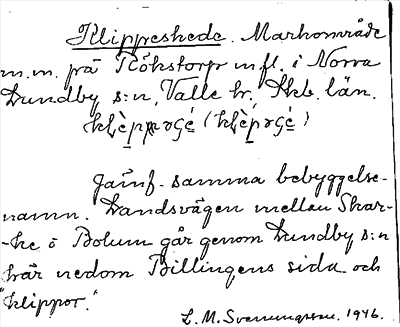 Klippeshede. Markområde
m.m. på Rökstorp m.fl. i Norra
Lundby s:n, Valle hr. Skb. län.
Jämf. samma bebyggelse-
namn. Landsvägen mellan Skar-
-ke o Bolum går genom Lundby s:n
här nedom Billingens sida och
"klippor."
L. M. Svennungsson. 1946.